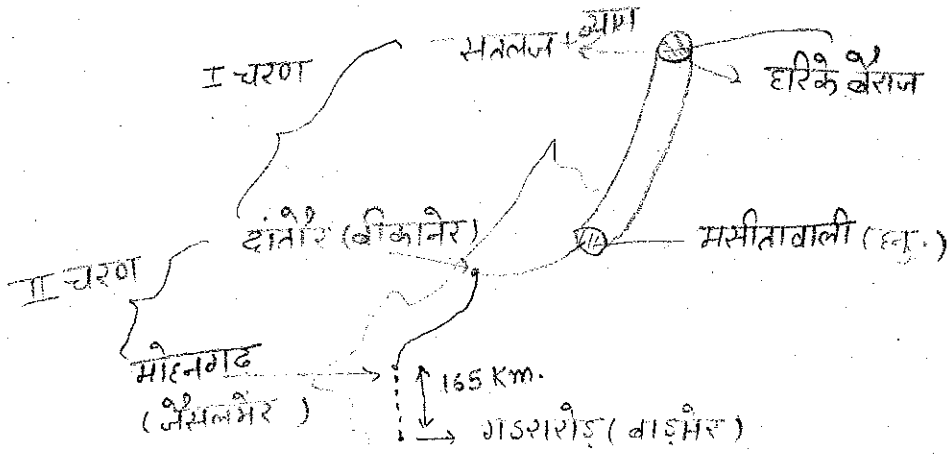 I चरण
सतलज + व्यास
हरिके बैराज
दांतौर (बीकानेर)
मसीतावाली (हनु.)
II चरण
मोहनगढ
(जैसलमेर)
165 Km.
गडरारोड़ (बाड़मेर)